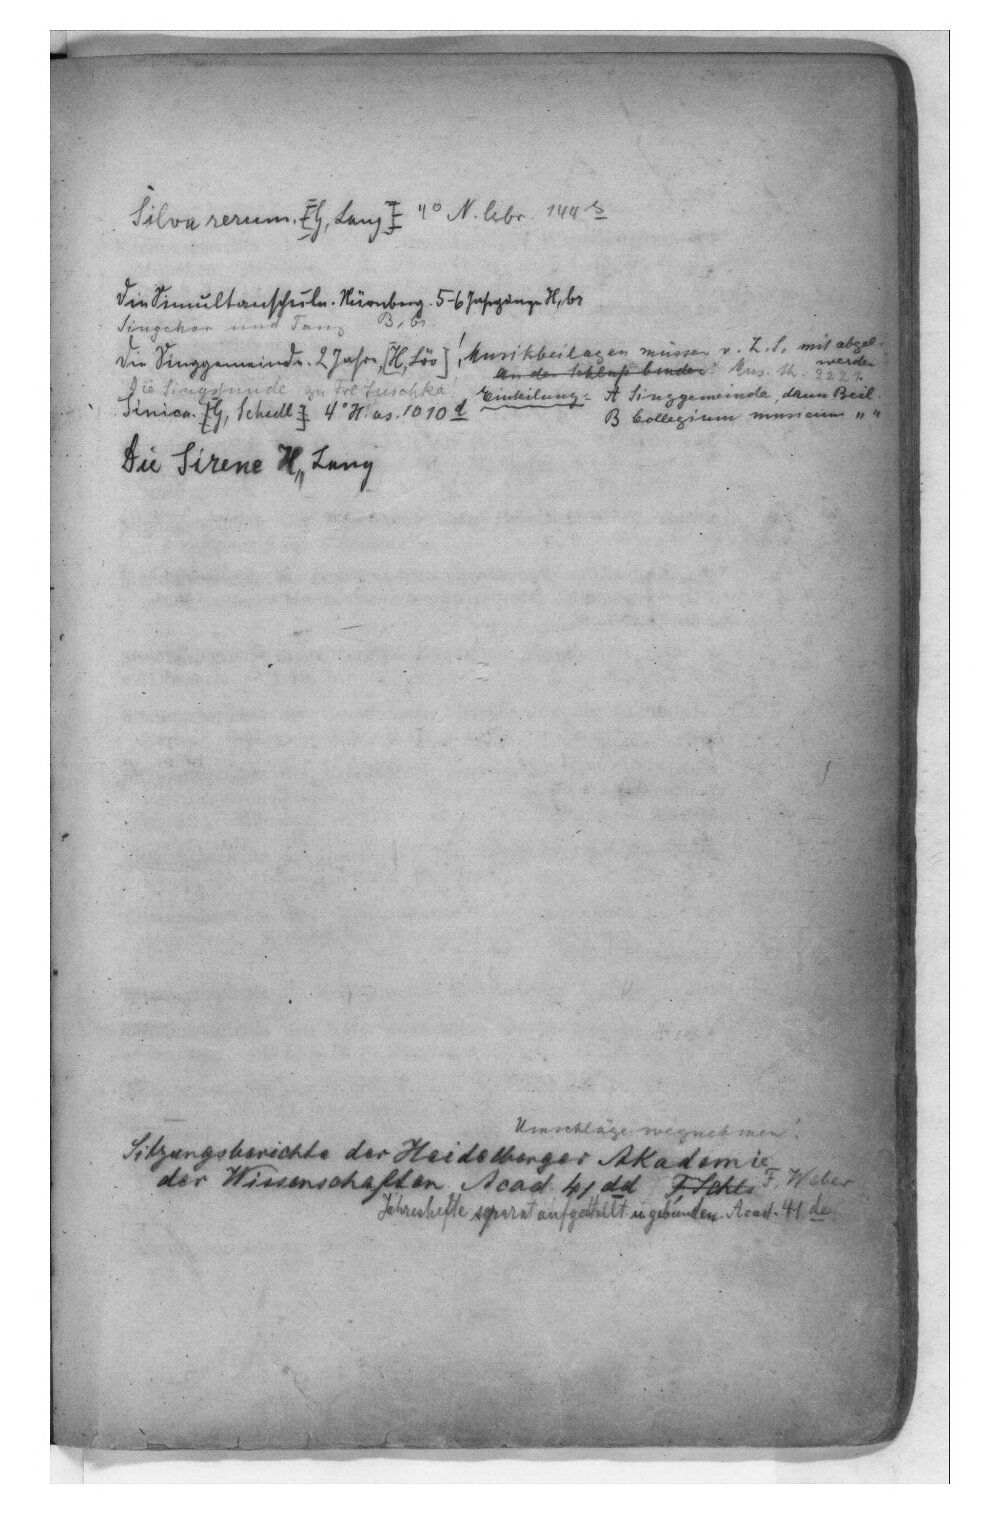 Silva rerum. [G, Lang] 4° N. libr. 144 s
Die Simultanschule. Nürnberg. 5-6 Jahrgänge H, br
Singchor und Tanz B, br.
Die Singgemeinde. 2 Jahre, [H, Löv] ! Musikbeilagen müssen v. Z. S. mit abgel.
werden
an den Schluß binden Mus. th. 3221.
Die Singstunde zu Frl Juschka!
Einteilung: A Singgemeinde, dann Beil.
Sinica. [G, Schedl] 4° H. as. 1010 d
B Collegium musicum " "
Die Sirene H,, Lang
Umschläge wegnehmen!
Sitzungsberichte der Heidelberger Akademie
der Wissenschaften Acad. 41 dd F. Weber
Jahreshefte separat aufgestellt u gebunden. Acad. 41 de